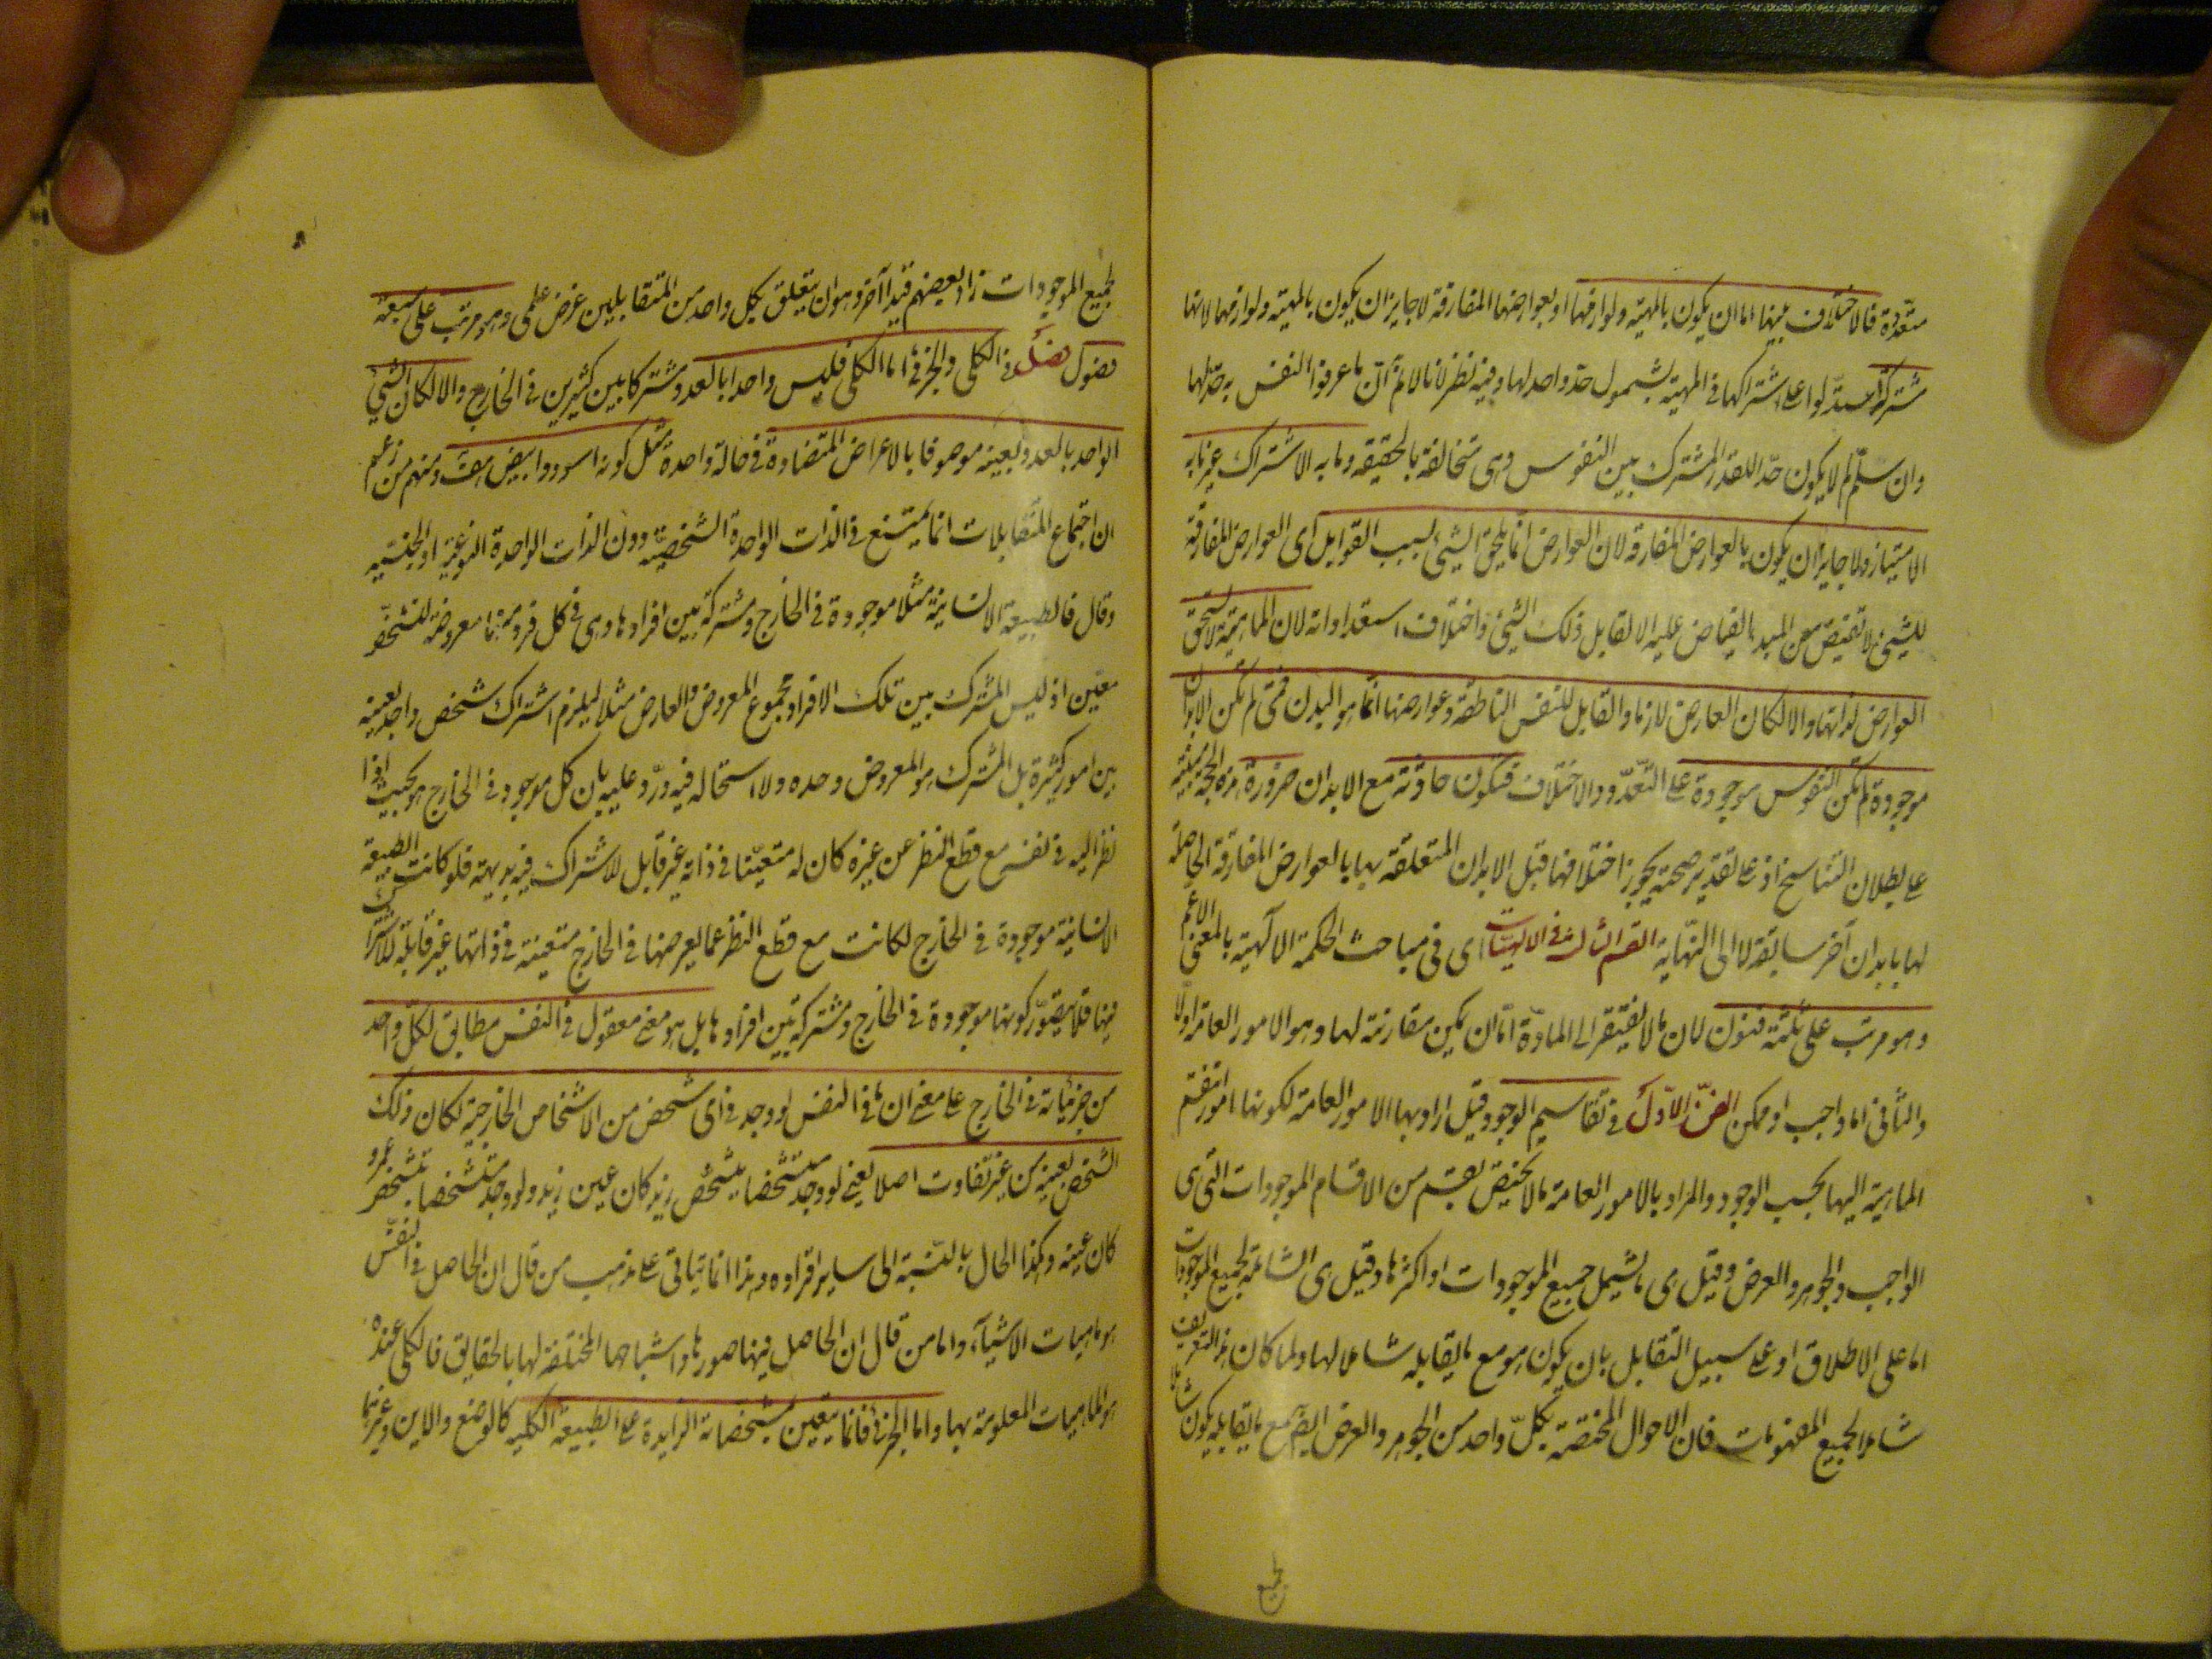 متعددة فالاختلاف بينها اما ان يكون بالمهية ولوازمها او بعوارضها المفارقة لا جايز ان يكون بالمهية ولوازمها لانها
مشتركة استدلوا على اشتراكها فى المهية بشمول حد واحد لها وفيه نظر لانا لا نم ان ما عرفوا النفس به حد لها
وان سلم لم لا يكون حدا للقدر المشترك بين النفوس وهى متخالفة بالحقيقة وما به الاشتراك غير ما به
الامتياز ولا جايز ان يكون بالعوارض المفارقه لان العوارض انما يلحق الشئ بسبب القوابل اى العوارض المفارقة
للشئ لا تفيض من المبدء الفياض عليه الا لقابل ذلك الشئ واختلاف استعداداته لان الماهية لا تستحق
العوارض لذاتها والا لكان العارض لازما والقابل للنفس الناطقة وعوارضها انما هو البدن فمتى لم تكن الابدان
موجودة لم تكن النفوس موجودة على التعدد والاختلاف فتكون حادثة مع الابدان ضرورة هذه الحجة مبنية
على بطلان التناسخ اذ على تقدير صحته يجوز اختلافها قبل الابدان المتعلقة بها بالعوارض المفارقة الحاصلة
لها بابدان آخر سابقة لا الى النهاية القسم الثالث فى الالهيات اى فى مباحث الحكمة الالهية بالمعنى الاعم
وهو مرتب على ثلثة فنون لان ما لا يفتقر الى المادة اما ان يمكن مقارنته لها وهو الامور العامة او لا
والثانى اما واجب او ممكن الفن الاول فى تقاسيم الوجود قيل اراد بها الامور العامة لكونها امور انقسم
الماهية اليها بحسب الوجود والمراد بالامور العامة ما لا يختص بقسم من الاقسام الموجودات التى هى
الواجب والجوهر والعرض وقيل هى ما يشمل جميع الموجودات او اكثرها وقيل هى الشاملة لجميع الموجودات
اما على الاطلاق او على سبيل التقابل بان يكون هو مع ما يقابله شاملا لها ولما كان هذا التعريف
شاملا لجميع المفهومات فان الاحوال المختصة بكل واحد من الجوهر والعرض ايض مع ما يقابله يكون شاملا
لجميع
لجميع الموجودات زاد بعضهم قيدا آخر وهو ان يتعلق بكل واحد من المتقابلين غرض علمى وهو مرتب على سبعة
فصول فصل فى الكلى والجزئى اما الكلى فليس واحدا بالعدد مشتركا بين كثيرين فى الخارج والا لكان الشئ
الواحد بالعدد بعينه موصوفا بالاعراض المتضادة فى حالة واحدة مثل كونه اسود وابيض هف ومنهم من زعم
ان اجتماع المتقابلات انما يمتنع فى الذات الواحدة الشخصية دون الذات الواحدة النوعية او الجنسيه
وقال فالطبيعة الانسانية مثلا موجودة فى الخارج ومشتركة بين افرادها وهى فى كل فرد منها معروضة لتشخص
معين اذ ليس المشترك بين تلك الافراد مجموع المعروض والعارض مثلا ليلزم اشتراك شخص واحد بعينه
بين امور كثيرة بل المشترك هو المعروض وحده ولا استحاله فيه ورد عليه بان كل موجود فى الخارج هو بحيث اذا
نظر اليه فى نفسه مع قطع النظر عن غيره كان له متعينا فى ذاته غير قابل للاشتراك فيه بديهة فلو كانت الطبيعة
الانسانية موجودة فى الخارج لكانت مع قطع النظر عما يعرضها فى الخارج متعينة فى ذاتها غير قابلة للاشتراك
فيها فلا يتصور كونها موجودة فى الخارج ومشتركة بين افرادها بل هو معنى معقول فى النفس مطابق لكل واحد
من جزئياته فى الخارج على معنى ان ما فى النفس لو وجد فى اى شخص من الاشخاص الخارجية لكان ذلك
الشخص بعينه من غير تفاوت اصلا يعنى لو وجد متشخصا بتشخص زيد كان عين زيد ولو وجد متشخصا بتشخص عمرو
كان عينه وهكذا الحال بالنسبة الى ساير افراده وهذا انما يتاتى على مذهب من قال ان الحاصل فى النفس
هو ماهيات الاشياء واما من قال ان الحاصل فيها صورها واشباحها المختلفة لها بالحقايق فالكلى عنده
هو الماهيات المعلومة بها واما الجزئى فانما يتعين بمشخصاته الزايدة على الطبيعة الكلية كالوضع والاين وغيرهما